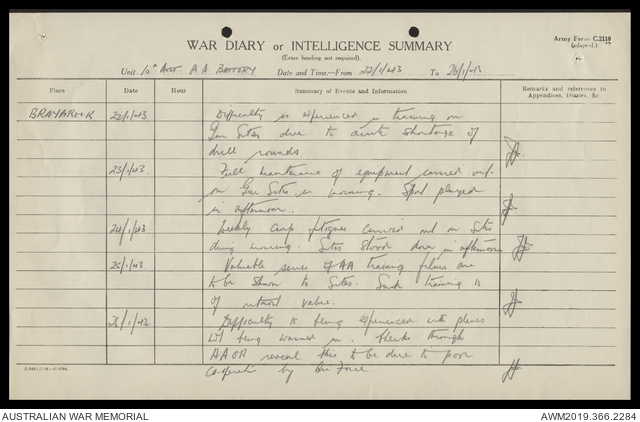 Army Form C.2118
(adapted.)
WAR DIARY or INTELLIGENCE SUMMARY
(Erase heading not required).
Unit. 10th Aust A A BATTERY Date and Time—From 22/1/43 To 26/1/43
Place Date Hour Summary of Events and Information Remarks and references to Appendices, Diaries, &c.
BRAYBROOK 22/1/43 Difficulty is experienced in training on
Gun Sites due to acute shortage of
drill rounds
23/1/43. Full maintenance of equipment carried out
on Gun Sites in morning. Sport played
in afternoon.
24/1/43 Weekly Camp fatigues carried out on Sites
during morning. Sites stood down in afternoon
25/1/43 Valuable series of AA training films are
to be shown to Sites. Such training is
of utmost value.
26/1/43 Difficulty is being experienced with planes
not being warned in. Checks through
AAOR reveal this to be due to poor
Co-operation by Air Force
AUSTRALIAN WAR MEMORIAL
AWM2019.366.2284